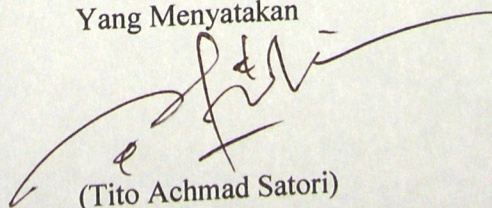 Yang Menyatakan
(Tito Achmad Satori)